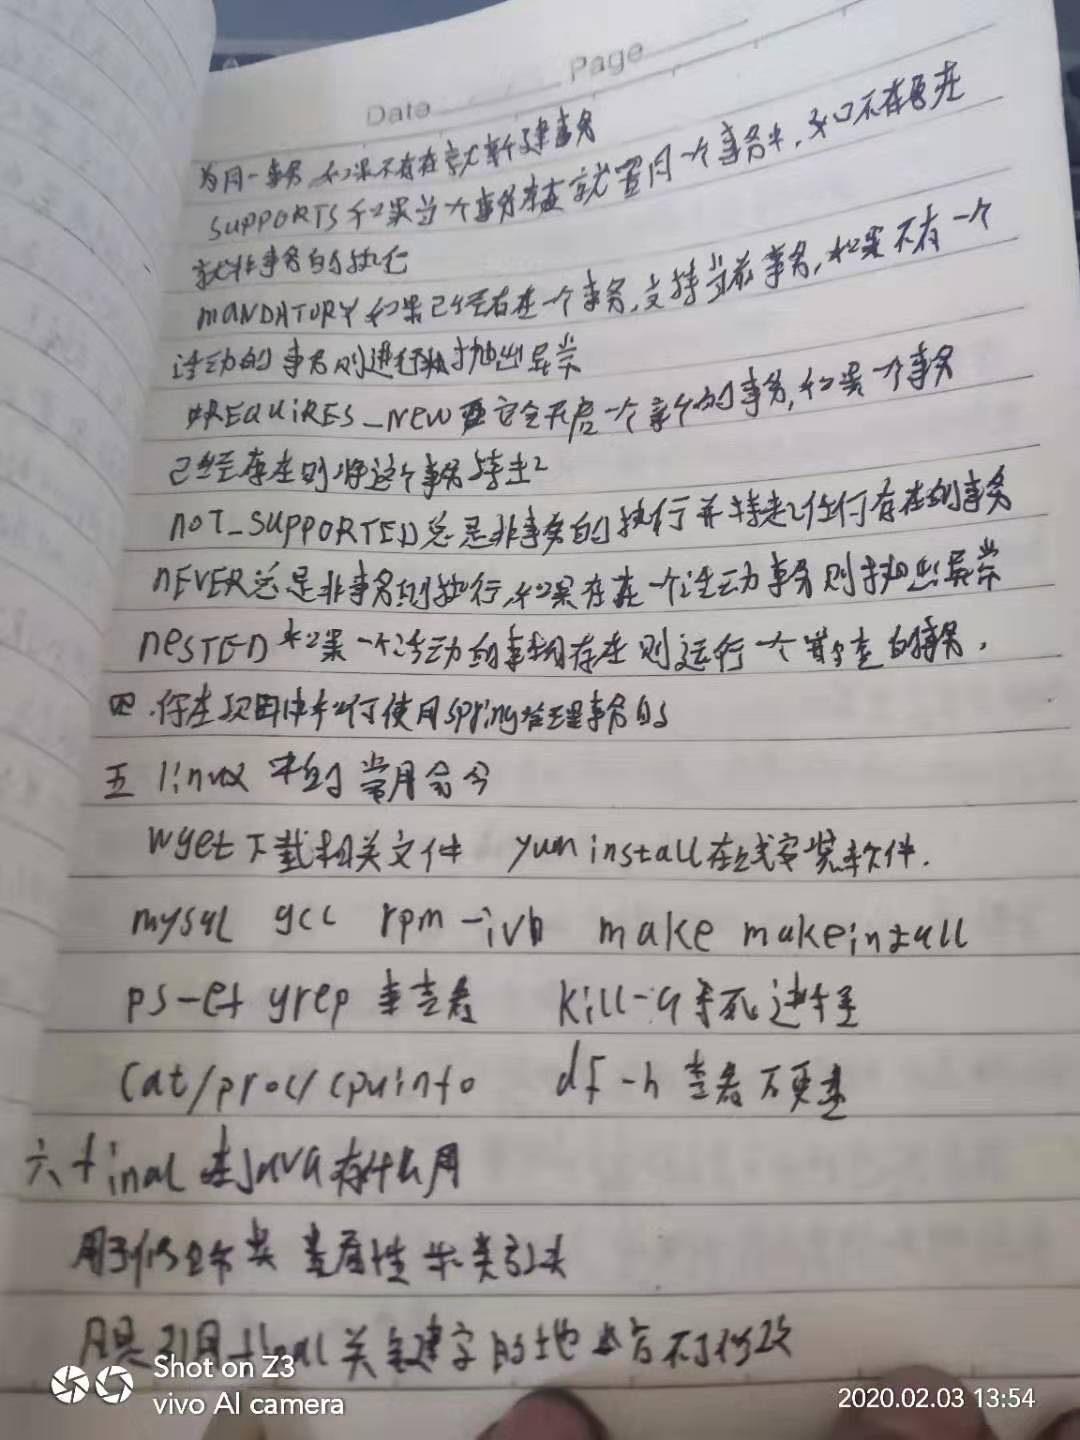 Date Page
为同一事务 如果不存在就新建事务
SUPPORTS 如果当个事务存在就置同一个事务中,如不存在
就非事务的执行
MANDATORY 如果已经存在一个事务,支持当前事务,如果不有一个
活动的事务则进行抛出异常
REQUIRES_NEW 它会开启一个新的事务,如果一个事务
已经存在则将这个事务挂起
NOT_SUPPORTED 总是非事务的执行并挂起任何存在的事务
NEVER 总是非事务的执行,如果存在一个活动事务则抛出异常
NESTED 如果一个活动的事务存在则运行一个的事务.
四.你在项目中如何使用spring管理事务的
五 linux 中的常用命令
wget 下载相关文件 yum install 在线安装软件.
mysql gcc rpm -ivh make makeinstall
ps-ef grep 查看 kill-9 杀死进程
cat/proc/cpuinfo df -h 查看
六 final 在java有什么用
用于修类 属性和类
引用final关键字的地方不可修改
Shot on Z3
vivo AI camera
2020.02.03 13:54